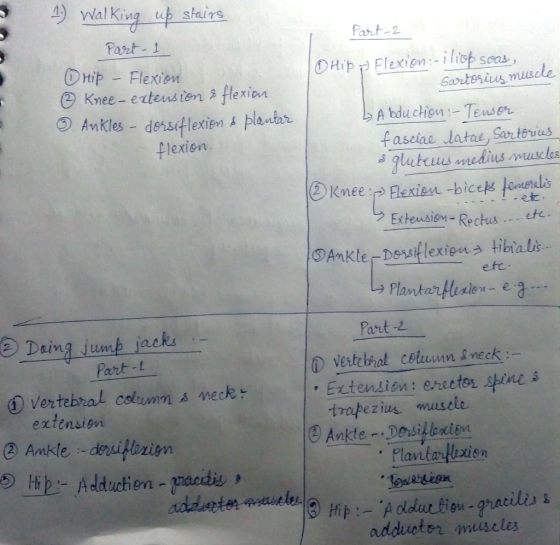 1) Walking up stairs
Part-1
① Hip - Flexion
② Knee - extension & flexion
③ Ankles - dorsiflexion & plantar
flexion
Part-2
① Hip → Flexion:- iliopsoas,
Sartorius muscle
→ Abduction:- Tensor
fasciae latae, Sartorius
& gluteus medius muscles
② Knee:→ Flexion - biceps femoralis
...... etc.
→ Extension - Rectus .... etc.
③ Ankle - Dorsiflexion → tibialis..
etc.
→ Plantarflexion - e.g ....
② Doing jump jacks :-
Part-1
① Vertebral column & neck:-
extension
② Ankle :- dorsiflexion
③ Hip:- Adduction - gracilis &
adductor muscles
Part-2
① Vertebral column & neck:-
• Extension: erector spine &
trapezius muscle
② Ankle -• Dorsiflexion
• Plantarflexion
③ Hip:- • Adduction - gracilis &
adductor muscles